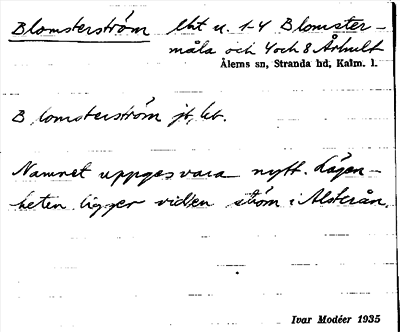 Blomsterström lht u. 1-4 Blomster-
måla och 4 och 8 Århult
Ålems sn, Stranda hd, Kalm. l.
Blomsterström jt, bt.
Namnet uppges vara nytt. Lägen-
heten ligger vid en ström i Alsterån.
Ivar Modéer 1935